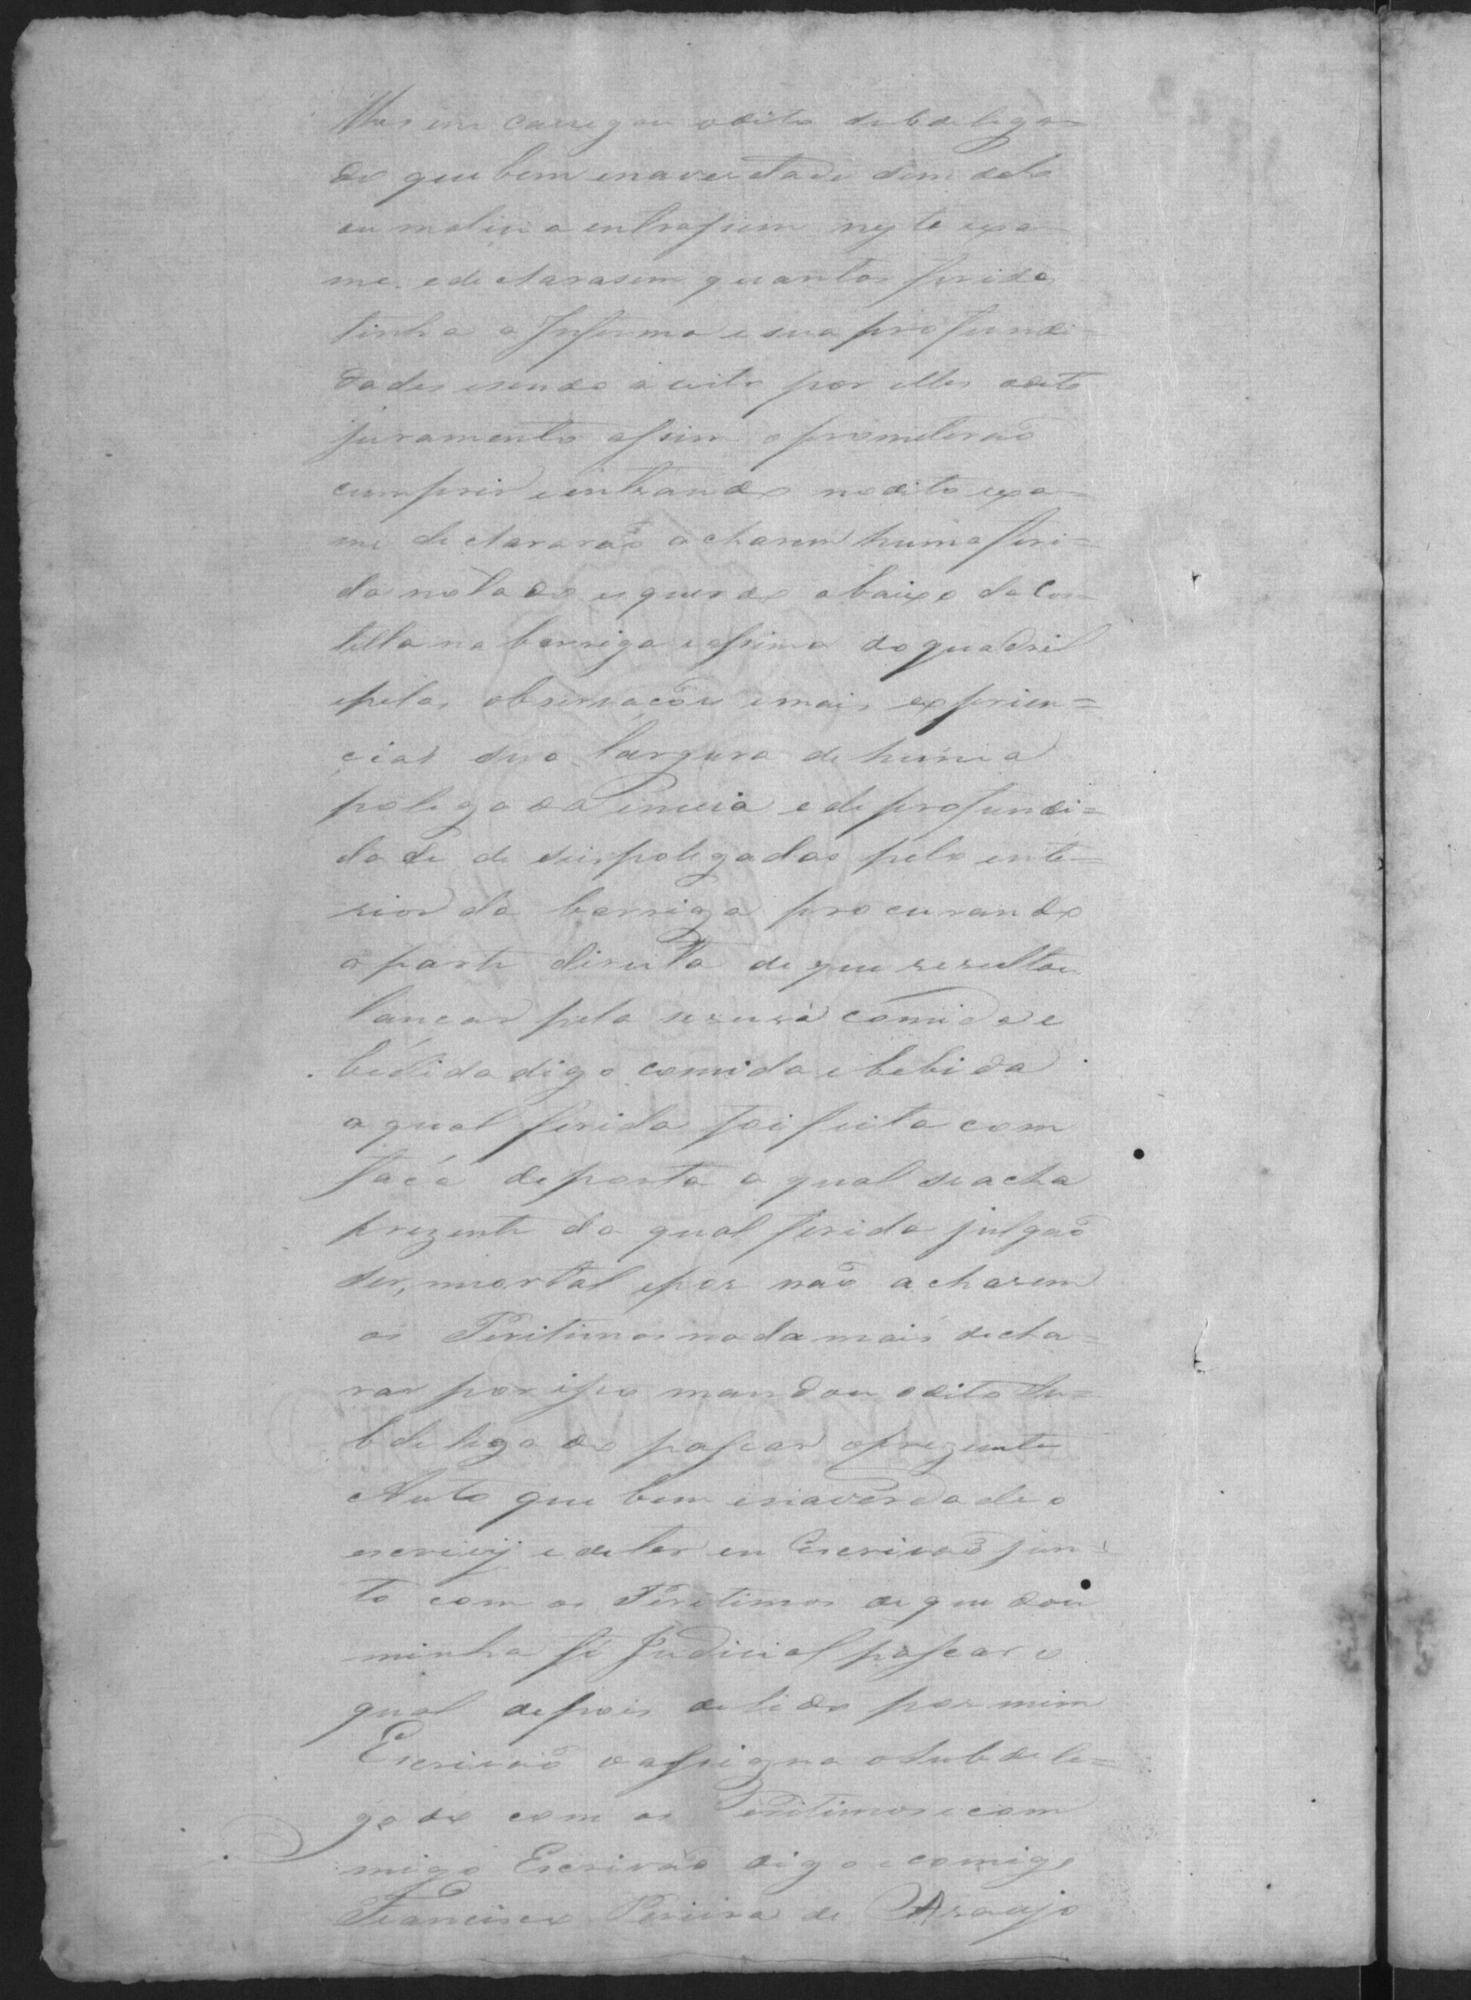 lhes encarregou o dito Subdelega=
do que bem e na verdade sem dolo
ou malicia entrassem neste exa=
me, e declarasem quantas feridas
tinha a Inferma e sua profundi=
dades e sendo aceito por elles o dito
juramento assim o prometerão
cumprir e entrando no dito exa=
me declararaõ acharem huma feri=
da no lado esquerdo abaixo da Cos=
tella na barriga e assima do quadril
e pelas observacões e mais experien=
cias deo largura de huma
polegada e meia e de profundi=
dade de seis polegadas pelo inte=
rior da barriga procurando
a parte direita de que resultou
lancar pela mesma comida e
bedida digo comida e bebida
a qual ferida foi feita com
faca de ponta a qual se acha
prezente da qual ferida julgaõ
ser, mortal e por naõ acharem
os Peritimos nada mais decla=
rar por isso mandou o dito Su=
bdelegado passar o prezente
Auto que bem e na verdade o
escrevy e de ter eu Escrivaõ jun=
to com os Peritimos de que dou
minha fé Judicial passar o
qual depois de lido por mim
Escrivaõ o assigna o Subdele=
gado com os Peritimos e com
migo Escrivaõ digo e comigo
Francisco Pereira de Araujo